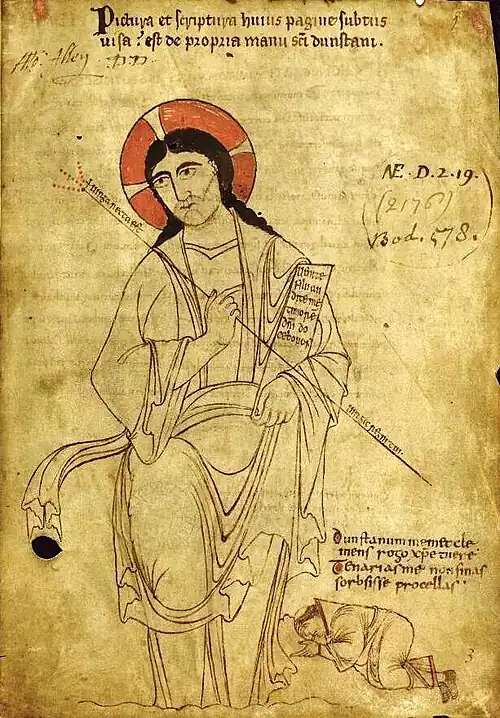 Pictura et scriptura huius pagine subtus
uisa ? est de propria manu sci dunstani .
NE. D. 2. 19.
(2176)
Bod. 578.
Uenite
filii au
dite me
timorē
dni do
cebo uos
Dunstanum memet cle
mens rogo xp̄e tuere
Tenarias me non sinas
sorbsisse procellas
3